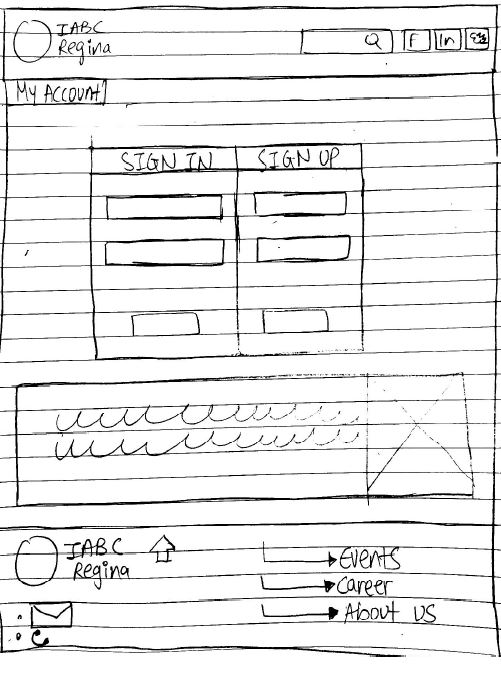 IABC
Regina
F
In
My Account
SIGN IN
SIGN UP
IABC
Regina
Events
Career
About us